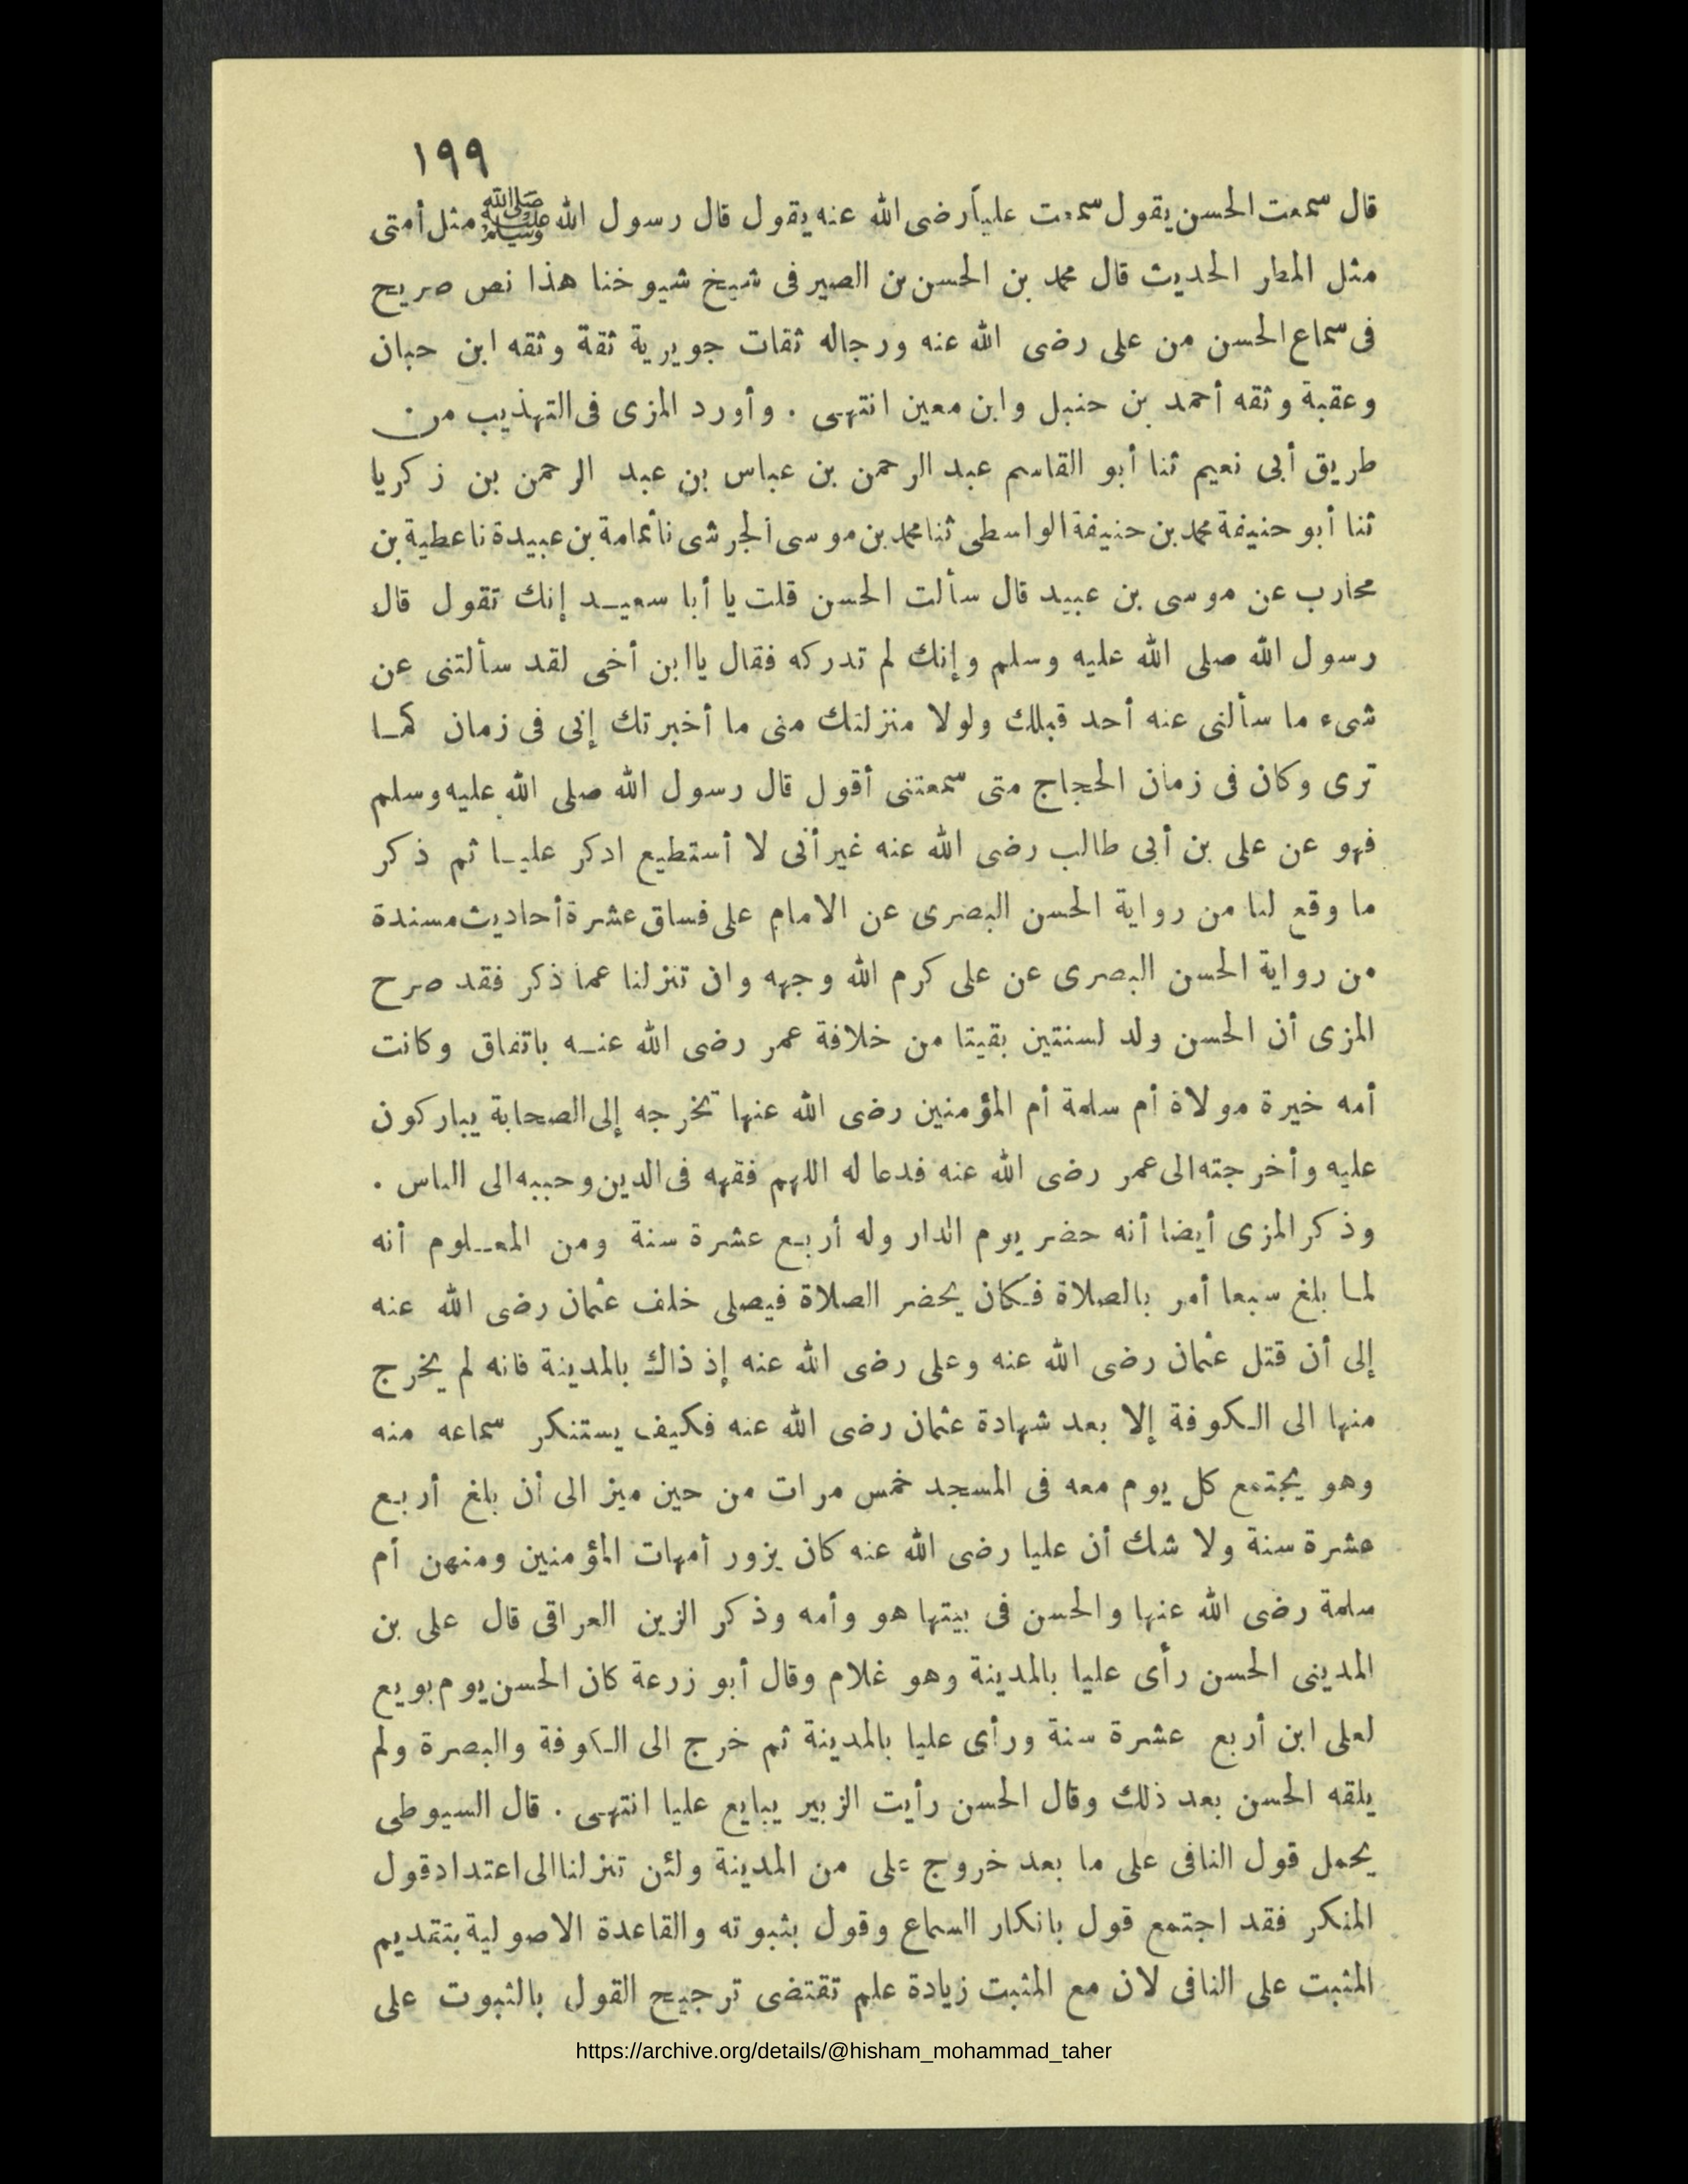 ١٩٩
قال سمعت الحسن يقول سمعت علياً رضى الله عنه يقول قال رسول الله ﷺ مثل أمتى
مثل المطر الحديث قال محمد بن الحسن بن الصير فى شيخ شيوخنا هذا نص صريح
فى سماع الحسن من على رضى الله عنه ورجاله ثقات جويرية ثقة وثقه ابن حبان
وعقبة وثقه أحمد بن حنبل وابن معين انتهى . وأورد المزى فى التهذيب من
طريق أبى نعيم ثنا أبو القاسم عبد الرحمن بن عباس بن عبد الرحمن بن زكريا
ثنا أبو حنيفة محمد بن حنيفة الواسطى ثنا محمد بن موسى الجرشى نا ثمامة بن عبيدة نا عطية بن
محارب عن موسى بن عبيد قال سألت الحسن قلت يا أبا سعيد إنك تقول قال
رسول الله صلى الله عليه وسلم وإنك لم تدركه فقال يا ابن أخى لقد سألتنى عن
شىء ما سألنى عنه أحد قبلك ولولا منزلتك منى ما أخبرتك إنى فى زمان كما
ترى وكان فى زمان الحجاج متى سمعتنى أقول قال رسول الله صلى الله عليه وسلم
فهو عن على بن أبى طالب رضى الله عنه غير أنى لا أستطيع اذكر عليا ثم ذكر
ما وقع لنا من رواية الحسن البصرى عن الامام على فساق عشرة أحاديث مسندة
من رواية الحسن البصرى عن على كرم الله وجهه وان تنزلنا عما ذكر فقد صرح
المزى أن الحسن ولد لسنتين بقيتا من خلافة عمر رضى الله عنه باتفاق وكانت
أمه خيرة مولاة أم سلمة أم المؤمنين رضى الله عنها تخرجه إلى الصحابة يباركون
عليه وأخرجته الى عمر رضى الله عنه فدعا له اللهم فقهه فى الدين وحببه الى الناس .
وذكر المزى أيضا أنه حضر يوم الدار وله أربع عشرة سنة ومن المعلوم أنه
لما بلغ سبعا أمر بالصلاة فكان يحضر الصلاة فيصلى خلف عثمان رضى الله عنه
إلى أن قتل عثمان رضى الله عنه وعلى رضى الله عنه إذ ذاك بالمدينة فانه لم يخرج
منها الى الكوفة إلا بعد شهادة عثمان رضى الله عنه فكيف يستنكر سماعه منه
وهو يجتمع كل يوم معه فى المسجد خمس مرات من حين ميز الى أن بلغ أربع
عشرة سنة ولا شك أن عليا رضى الله عنه كان يزور أمهات المؤمنين ومنهن أم
سلمة رضى الله عنها والحسن فى بيتها هو وأمه وذكر الزين العراقى قال على بن
المدينى الحسن رأى عليا بالمدينة وهو غلام وقال أبو زرعة كان الحسن يوم بويع
لعلى ابن أربع عشرة سنة ورأى عليا بالمدينة ثم خرج الى الكوفة والبصرة ولم
يلقه الحسن بعد ذلك وقال الحسن رأيت الزبير يبايع عليا انتهى . قال السيوطى
يحمل قول النافى على ما بعد خروج على من المدينة ولئن تنزلنا الى اعتداد قول
المنكر فقد اجتمع قول بانكار السماع وقول بثبوته والقاعدة الاصولية بتقديم
المثبت على النافى لان مع المثبت زيادة علم تقتضى ترجيح القول بالثبوت على
https://archive.org/details/@hisham_mohammad_taher